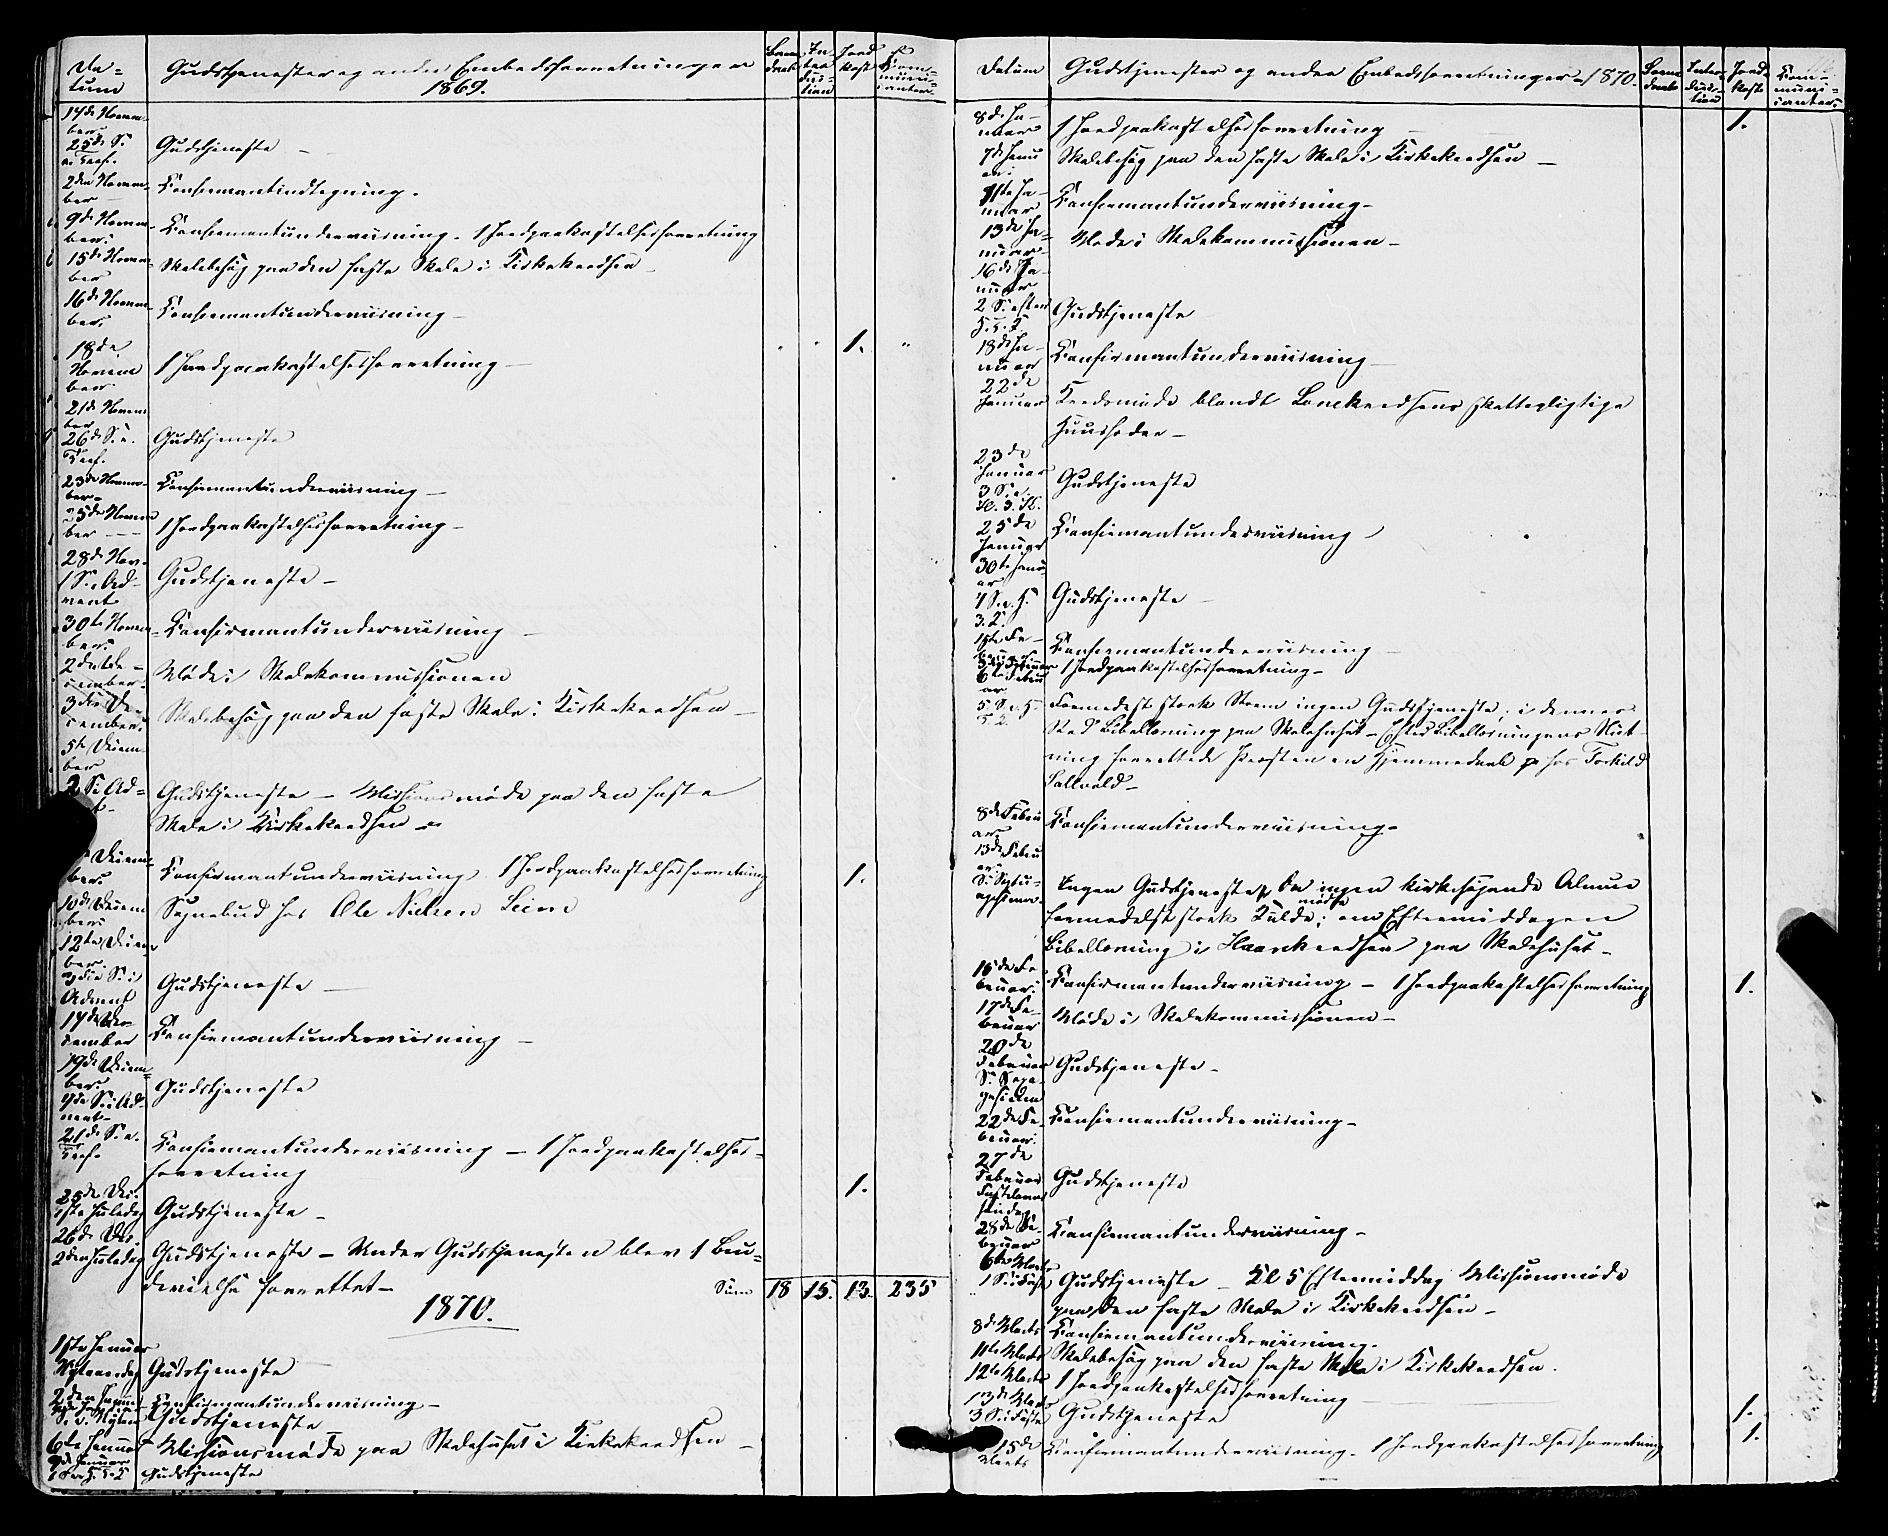 Da-
tum
Gudstjenester og andre Embedsforretninger
1869.
Barne
daab
In
tro
duc-
tion
Jord
kast
Com-
muni-
canter.
14de Novem-
ber.
25de S.
e. Tref.
Gudstjeneste –
2den Novem-
ber
Konfirmantindtegning.
9de Novem-
ber.
Konfirmantunderviisning. 1 Jordpaakastelsesforretning
15de Novem-
ber
Skolebesøg paa den faste Skole i Kirkekredsen –
16de Novem-
ber.
Konfirmantunderviisning –
18de
Novem
ber
1 Jordpaakastelsesforretning –
1.
21de Novem
ber
26de S. e.
Tref.
Gudstjeneste
23de Novem-
ber.
Konfirmantunderviisning –
25de Novem
ber
1 Jordpaakastelsesforretning –
28de Nov.
1 S. i Ad-
vent
Gudstjeneste –
30te Novem-
ber.
Konfirmantunderviisning –
2den De-
cember.
Møde i Skolekommissionen
3die De-
cember.
Skolebesøg paa den faste Skole i Kirkekredsen –
5te Decem-
ber
2 S. i Ad-
Gudstjeneste – Missionsmøde paa den faste
Skole i Kirkekredsen –
Decem-
ber.
Konfirmantunderviisning. 1 Jordpaakastelsesforretning
1.
10de Decem
ber.
Sognebud hos Ole Nielsen Leime
12te Decem-
ber.
3die S. i
Advent
Gudstjeneste –
14de De-
cember
Konfirmantunderviisning –
19de Decem-
ber.
4de S. i Ad-
vent.
Gudstjeneste
21de S. e.
Tref.
Konfirmantunderviisning – 1 Jordpaakastelses-
forretning
1.
25de Dec.
1ste Juledag
Gudstjeneste –
26de Dec.
2den Juledag
Gudstjeneste – Under Gudstjenesten blev 1 Bru-
devielse forrettet –
Sum 18 15. 13. 235
1870.
1ste Januar
Nytaarsdag
Gudstjeneste –
2den Januar
S. e. Nytaar
Konfirmantunderviisning –
Gudstjeneste
6te Januar
Missionsmøde paa Skolehuset i Kirkekredsen –
9de Januar
Gudstjeneste
Datum
Gudstjenester og andre Embedsforretninger – 1870.
Barne
daab
Intro-
duc-
tion
Jord-
kast
Com-
muni-
canter.
8de Ja-
nuar
1 Jordpaakastelsesforretning –
1.
7de Janu
ar.
Skolebesøg paa den faste Skole i Kirkekredsen –
11te Ja-
nuar
Konfirmantunderviisning –
13de Ja-
nuar.
Møde i Skolekommissionen –
16de Ja-
nuar
2 S. efter
H. 3 K.
Gudstjeneste
18de Ja-
nuar
Konfirmantunderviisning –
22de
Januar
Kredsmøde blandt Kredsens skattepligtige
Huusfædre –
23de
Januar
3 S. e.
H. 3. K.
Gudstjeneste
25de
Januar
Konfirmantunderviisning
30te Janu-
ar
4 S. e. H.
3. K.
Gudstjeneste –
1ste Fe-
bruar
Konfirmantunderviisning –
Februar
1 Jordpaakastelsesforretning –
6te Febru
ar
5 S. e. H
3 K.
Formedelst stærk Storm ingen Gudstjeneste; i dennes
Sted Bibellæsning paa Skolehuset – Efter Bibellæsningens Slut-
ning forrettede Præsten en Hjemmedaab hos Torkild
8de Febru
ar
Konfirmantunderviisning –
13de Febru
ar.
S. Septu-
agesima.
Ingen Gudstjeneste, da ingen kirkesøgende Almue
mødte
formedelst stærk Kulde; om Eftermiddagen
Bibellæsning i Kredsen paa Skolehuset –
15de Fe-
bruar.
Konfirmantunderviisning – 1 Jordpaakastelsesforretning
1.
17de Fe-
bruar
Møde i Skolekommissionen –
20de
Februar
S. Sexa-
gesima
Gudstjeneste –
22de Fe-
bruar.
Konfirmantunderviisning –
27de
Februar
Fastelavns
søndag
Gudstjeneste
28de Fe-
bruar
Konfirmantunderviisning –
6te Marts
1 S. i Faste
Gudstjeneste – Kl 5 Eftermiddag Missionsmøde
paa den faste Skole i Kirkekredsen –
8de Marts
Konfirmantunderviisning.
11te Marts
Skolebesøg paa den faste Skole i Kirkekredsen.
12te Marts
1 Jordpaakastelsesforretning –
1.
13de Marts
3 S. i Faste
Gudstjeneste
15de
Marts
Konfirmantunderviisning. 1 Jordpaakastelsesforretning
1.